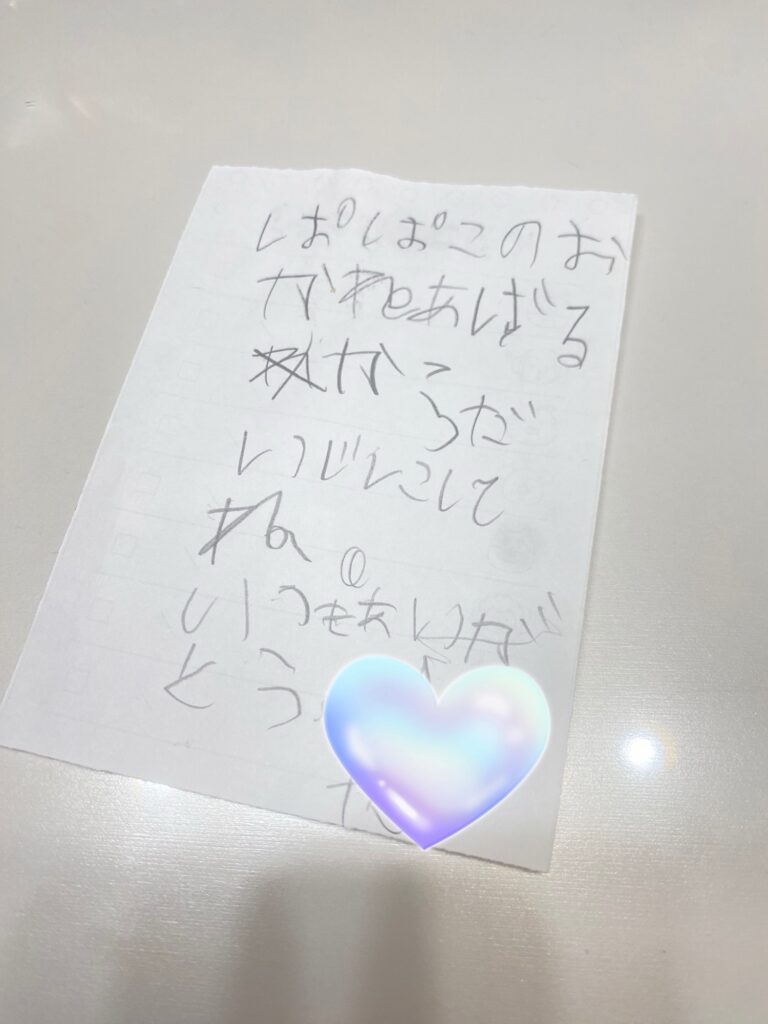 ぱぱこのお
かねあげる
からだ
いじにして
ね。
いつもありが
とう